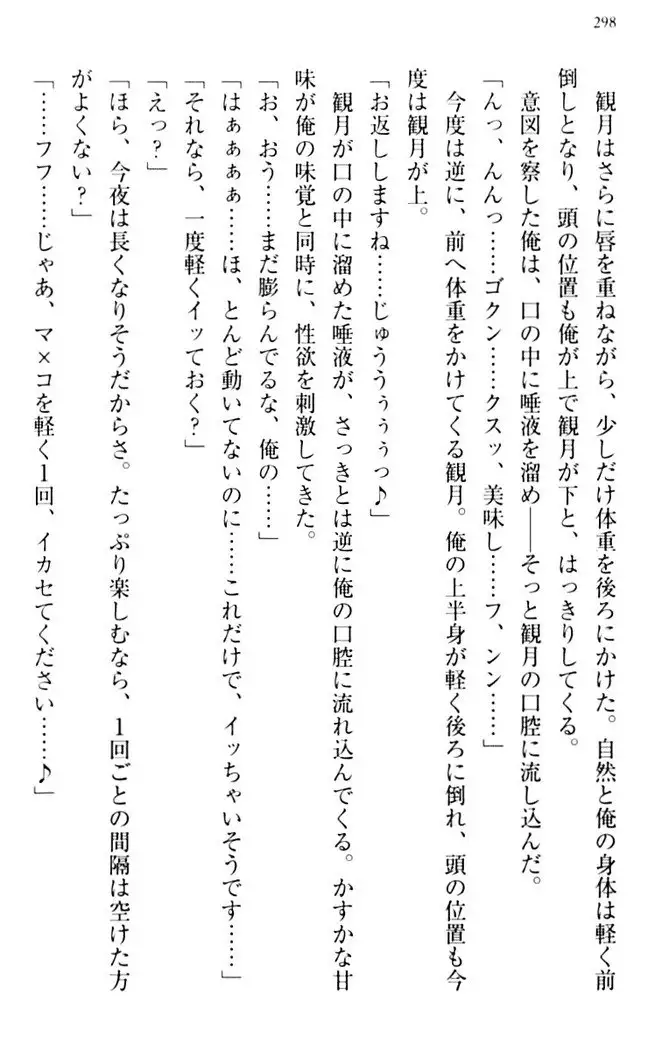 298
観月はさらに唇を重ねながら、少しだけ体重を後ろにかけた。自然と俺の身体は軽く前
倒しとなり、頭の位置も俺が上で観月が下と、はっきりしてくる。
意図を察した俺は、口の中に唾液を溜め――そっと観月の口腔に流し込んだ。
「んっ、んんっ……ゴクン……クスッ、美味し……フ、ンン……」
今度は逆に、前へ体重をかけてくる観月。俺の上半身が軽く後ろに倒れ、頭の位置も今
度は観月が上。
「お返ししますね……じゅううぅぅぅっ♪」
観月が口の中に溜めた唾液が、さっきとは逆に俺の口腔に流れ込んでくる。かすかな甘
味が俺の味覚と同時に、性欲を刺激してきた。
「お、おう……まだ膨らんでるな、俺の……」
「はぁぁぁぁ……ほ、とんど動いてないのに……これだけで、イッちゃいそうです……」
「それなら、一度軽くイッておく？」
「えっ？」
「ほら、今夜は長くなりそうだからさ。たっぷり楽しむなら、1回ごとの間隔は空けた方
がよくない？」
「……フフ……じゃあ、マ×コを軽く1回、イカセてください……♪」